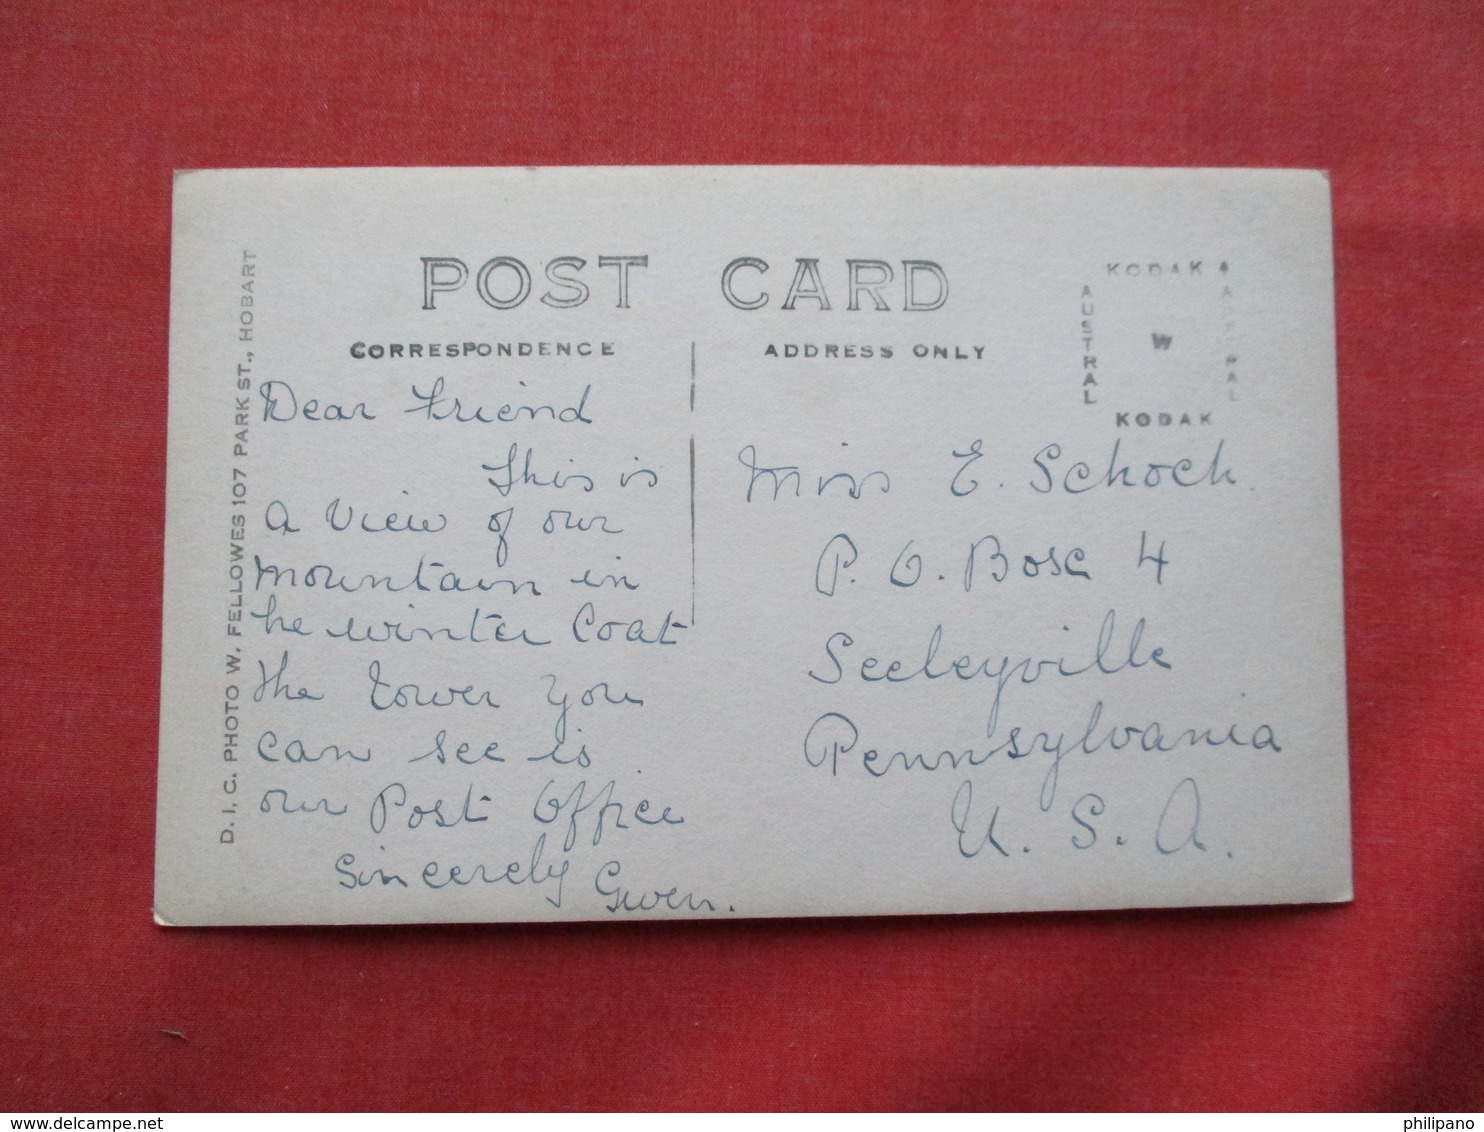 POST CARD
CORRESPONDENCE
ADDRESS ONLY
KODAK
AUSTRAL
W
KODAK
D. I. C. PHOTO W. FELLOWES 107 PARK ST., HOBART
Dear Friend
This is
a View of our
mountain in
he winter Coat
the tower you
can see is
our Post Office
Sincerely Gwen.
Miss E. Schoch
P. O. Box 4
Seeleyville
Pennsylvania
U. S. A.
www.delcampe.net
philipano